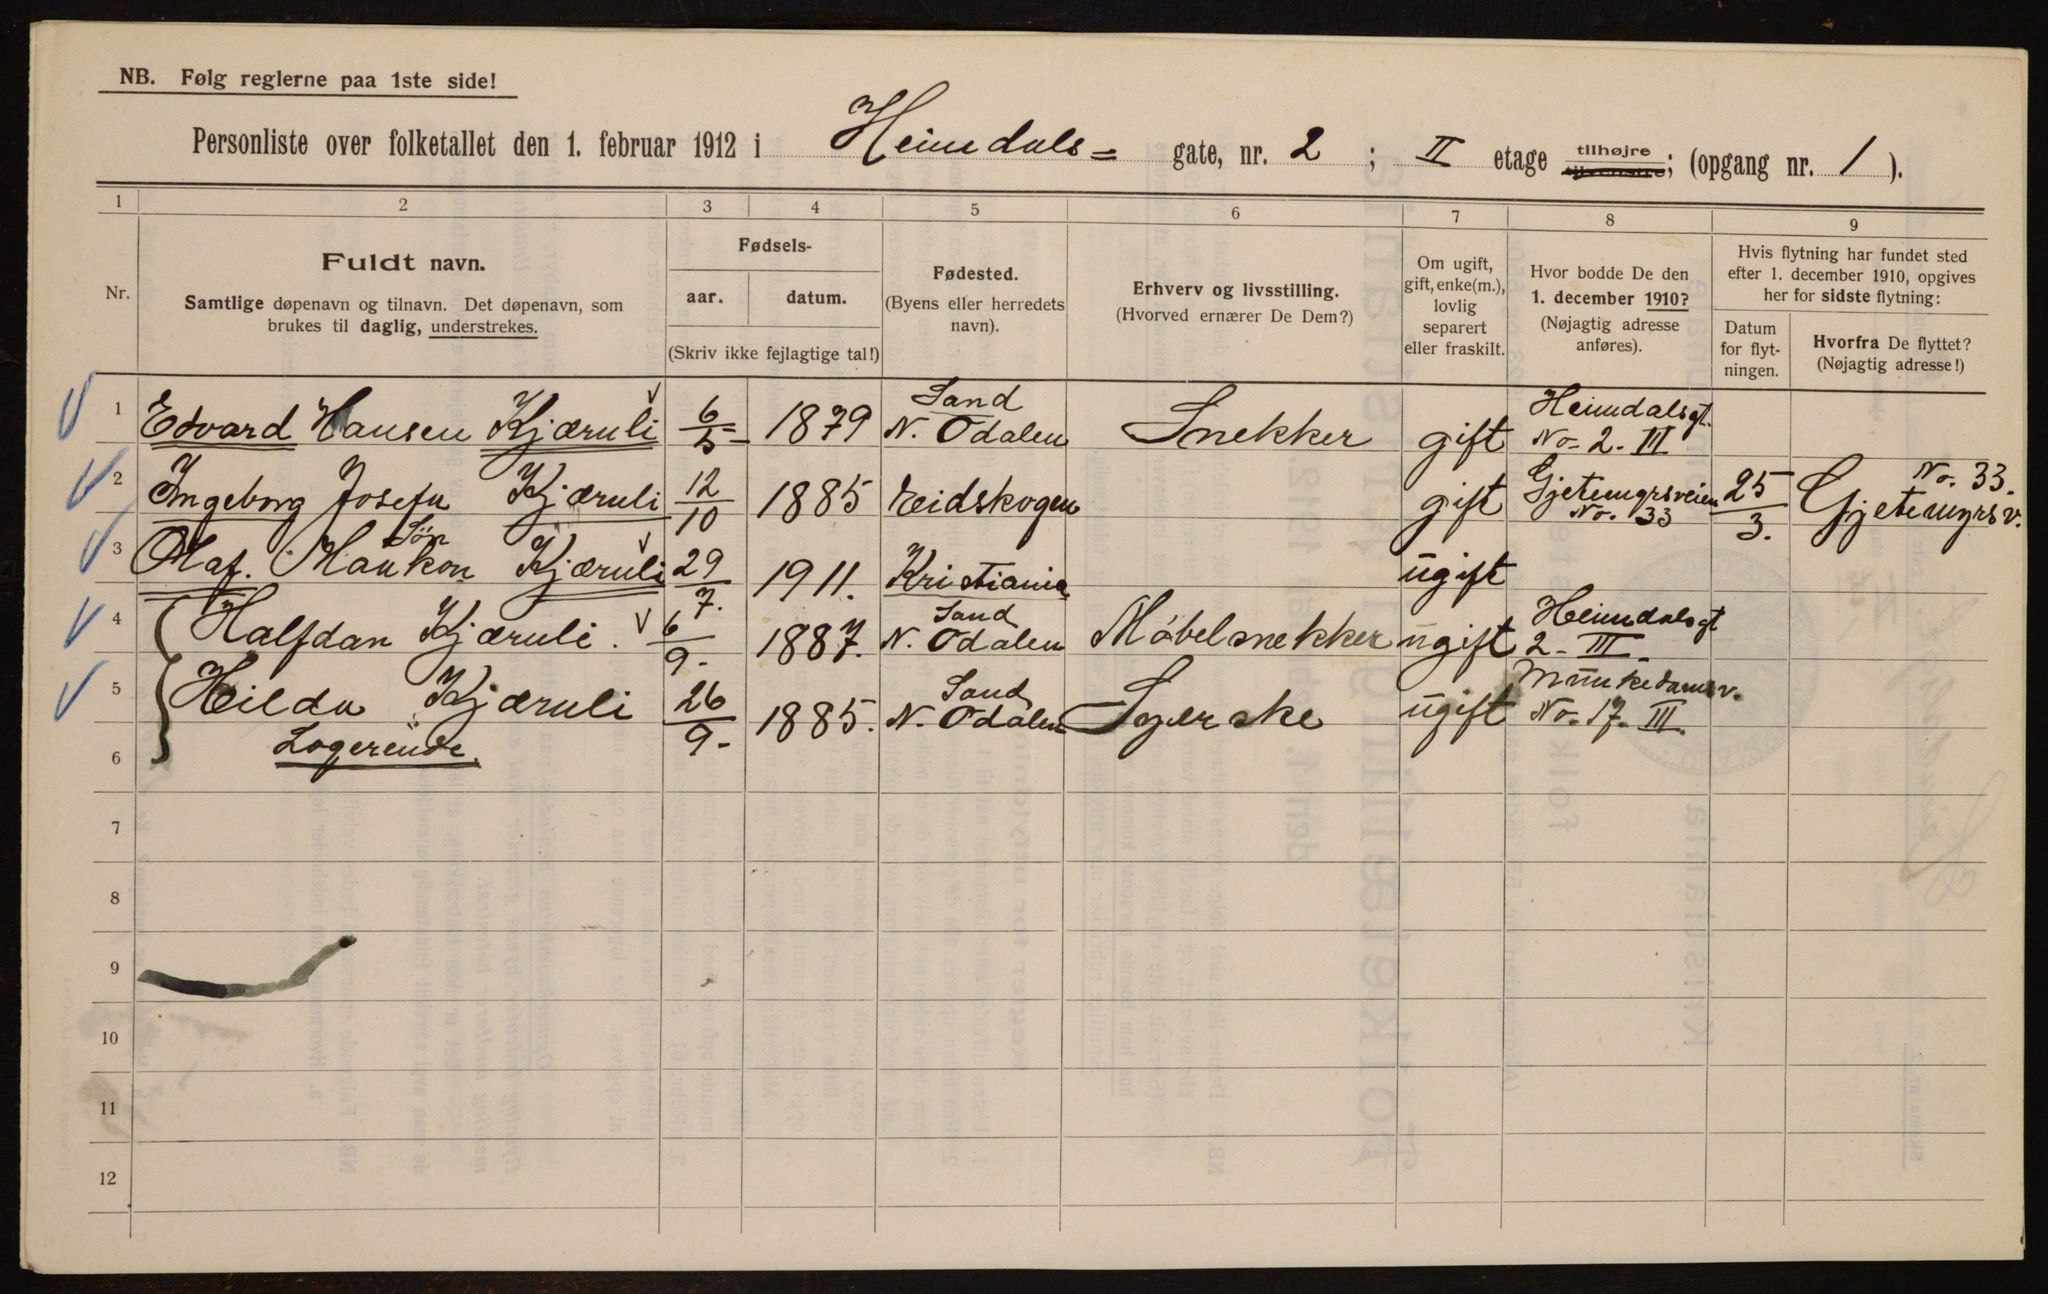 NB. Følg reglerne paa 1ste side!
Personliste over folketallet den 1. februar 1912 i Heimdals= gate, nr. 2 ; II etage tilhøjre tilvenstre; (opgang nr. 1 ).
1 2 3 4 5 6 7 8 9
Nr.
Fuldt navn.
Samtlige døpenavn og tilnavn. Det døpenavn, som
brukes til daglig, understrekes.
Fødsels-
aar. datum.
(Skriv ikke fejlagtige tal!)
Fødested.
(Byens eller herredets
navn).
Erhverv og livsstilling.
(Hvorved ernærer De Dem?)
Om ugift,
gift, enke(m.),
lovlig
separert
eller fraskilt.
Hvor bodde De den
1. december 1910?
(Nøjagtig adresse
anføres).
Hvis flytning har fundet sted
efter 1. december 1910, opgives
her for sidste flytning:
Datum
for flyt-
ningen.
Hvorfra De flyttet?
(Nøjagtig adresse!)
1 Edvard Hansen Kjæruli 6/5 1879 Sand N. Odalen Snekker gift Heimdalsgt. No. 2. III
2 Ingeborg Josefa Kjæruli 12/10 1885 Eidskogen gift Gjetemyrsveien No. 33 25/3. No. 33. Gjetemyrsv.
3 Olaf. Haakon Søn Kjæruli 29/7. 1911. Kristiania ugift
4 Halfdan Kjæruli. 6/9. 1887. Sand N. Odalen Møbelsnekker ugift Heimdalsgt 2. III
5 Hilda Kjæruli 26/9. 1885. Sand N. Odalen Syerske ugift Munkedamsv. No. 17. III
6 Logerende.
7
8
9
10
11
12